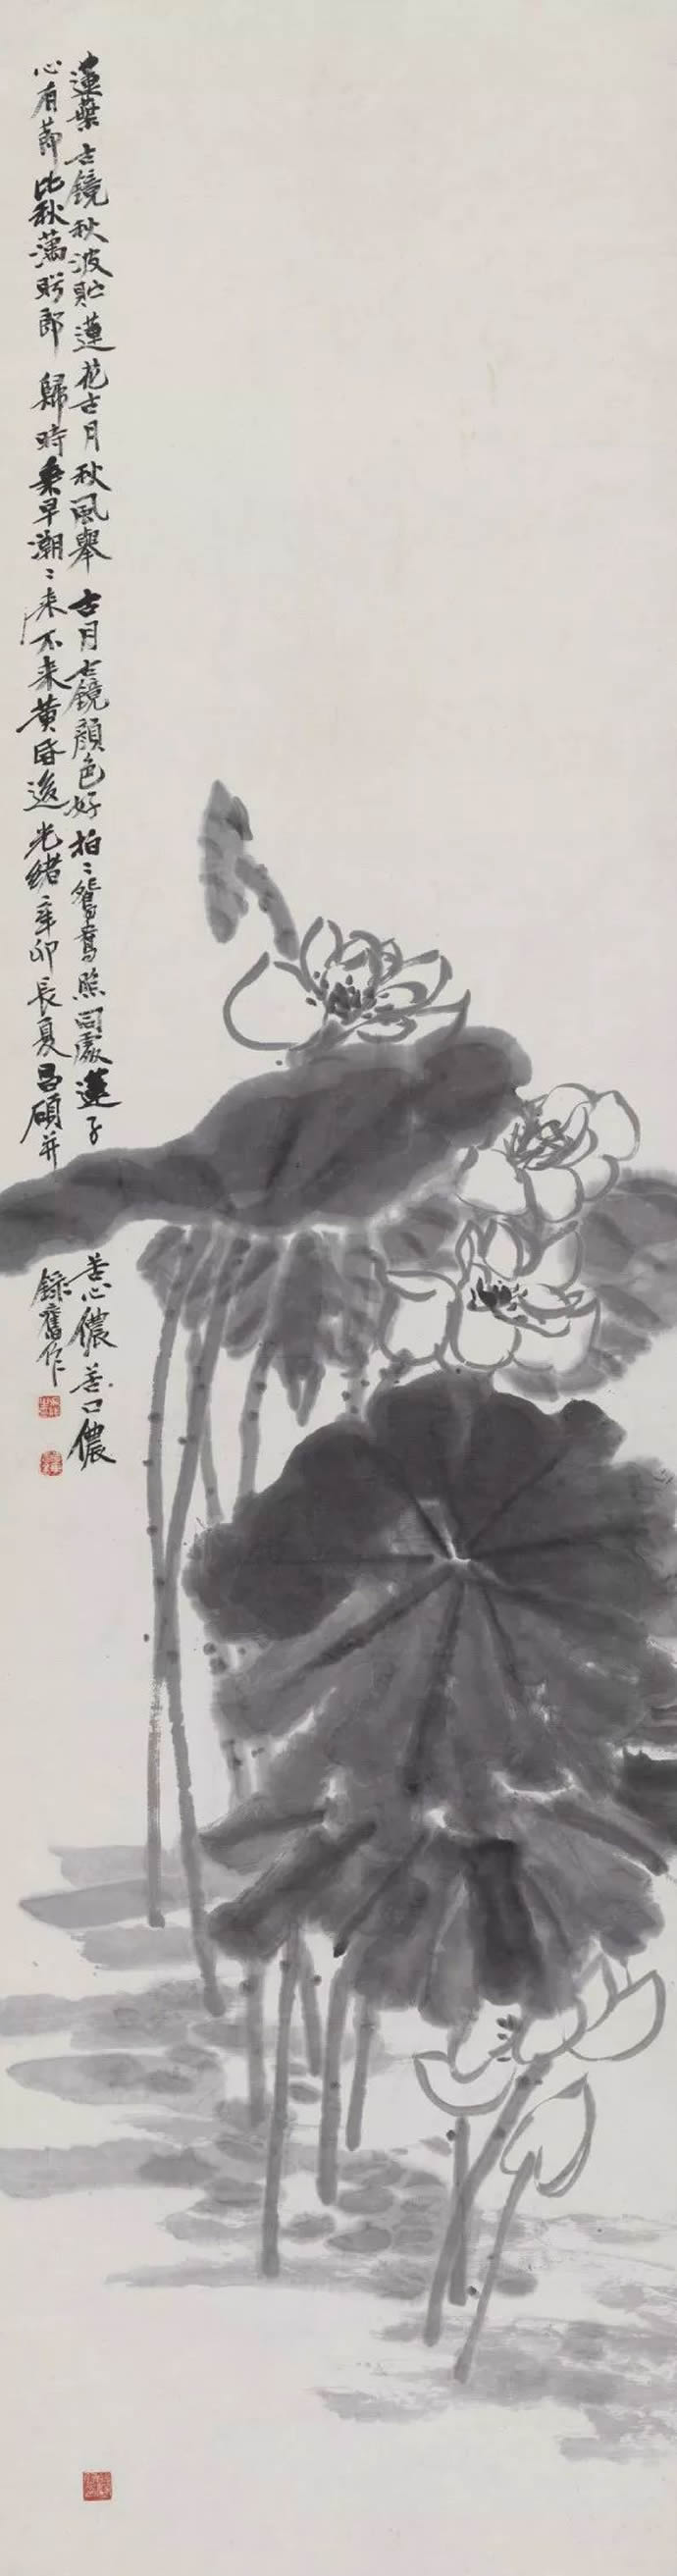 蓮葉古鏡秋波貯蓮花古月秋風舉古月古鏡顏色好拍〻鴛鴦照同處蓮子苦心儂苦口儂
心有節比秋藕盼郎歸時乘早潮〻來不來黃昏後光緒辛卯長夏昌碩并錄舊作